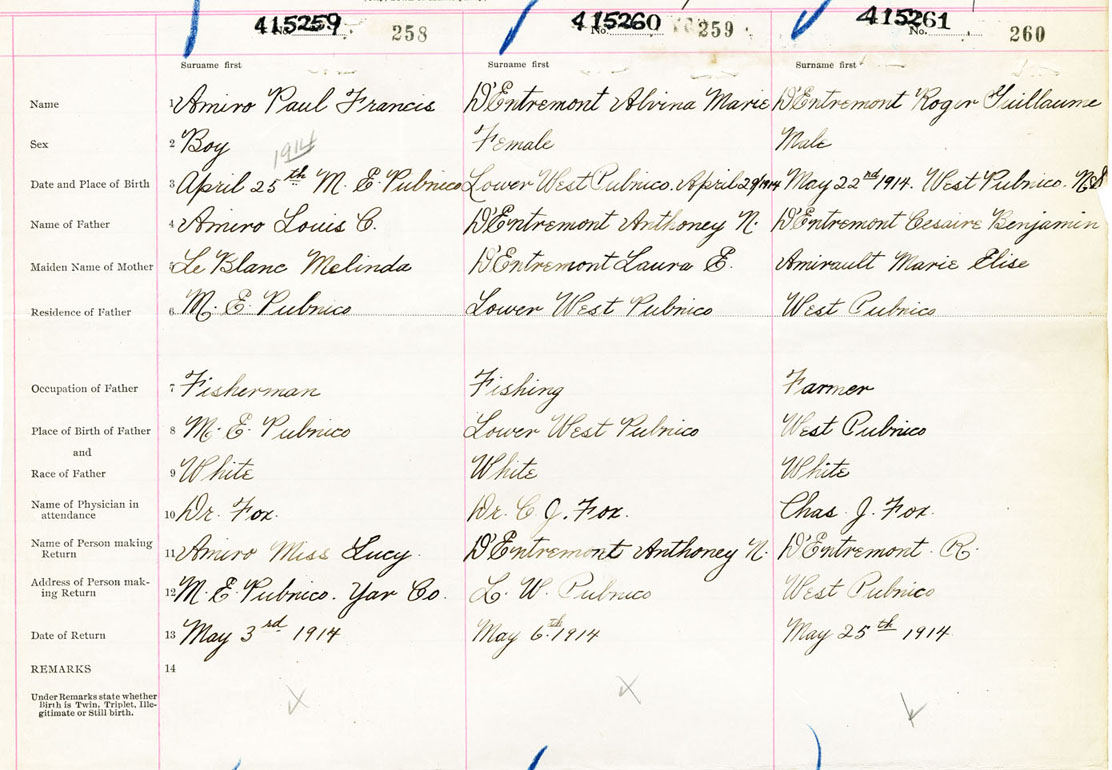 415259 No. 258 415260 No. 259 415261 No. 260
Surname first Surname first Surname first
Name 1 Amiro Paul Francis D'Entremont Alvina Marie D'Entremont Roger Guillaume
Sex 2 Boy Female Male
1914
Date and Place of Birth 3 April 25th M. E. Pubnico Lower West Pubnico. April 29/1914 May 22nd 1914. West Pubnico. N.S
Name of Father 4 Amiro Louis C. D'Entremont Anthoney N. D'Entremont Cesaire Benjamin
Maiden Name of Mother 5 Le Blanc Melinda D'Entremont Laura E. Amirault Marie Elise
Residence of Father 6 M. E. Pubnico Lower West Pubnico West Pubnico
Occupation of Father 7 Fisherman Fishing Farmer
Place of Birth of Father 8 M. E. Pubnico Lower West Pubnico West Pubnico
and
Race of Father 9 White White White
Name of Physician in
attendance 10 Dr. Fox. Dr. C. J. Fox. Chas. J. Fox.
Name of Person making
Return 11 Amiro Miss Lucy. D'Entremont Anthoney N. D'Entremont. R.
Address of Person mak-
ing Return 12 M. E. Pubnico. Yar Co. L. W. Pubnico West Pubnico
Date of Return 13 May 3rd 1914 May 6th 1914 May 25th 1914
REMARKS 14
Under Remarks state whether
Birth is Twin, Triplet, Ille-
gitimate or Still birth.